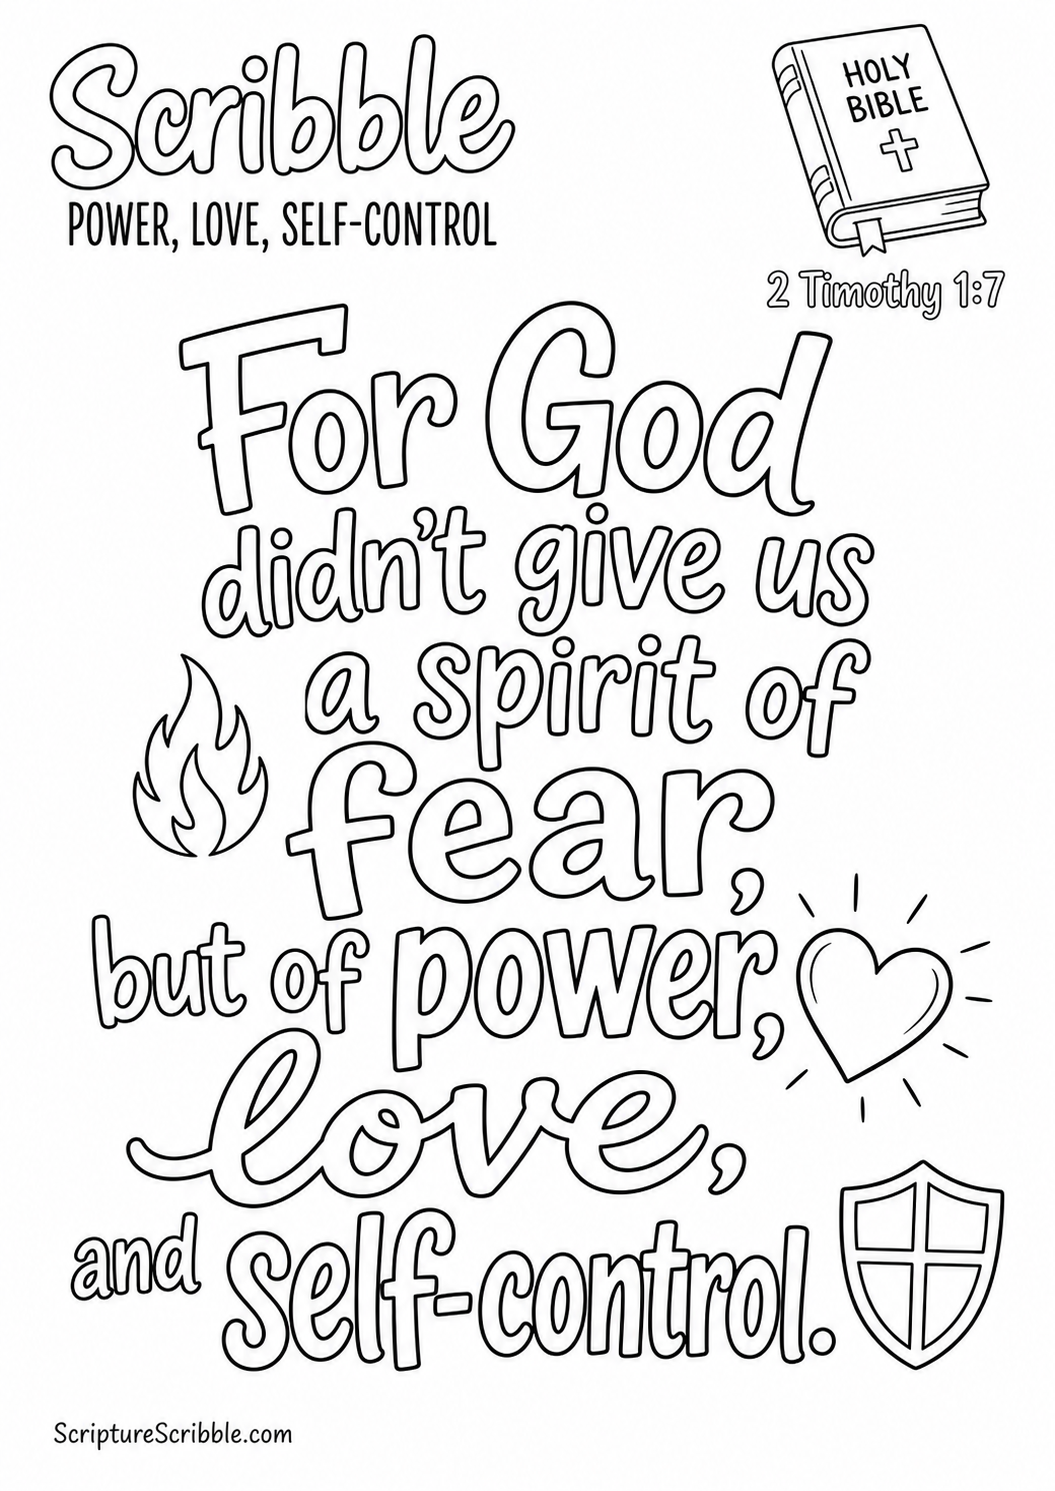 Scribble
POWER, LOVE, SELF-CONTROL
HOLY
BIBLE
2 Timothy 1:7
For God
didn't give us
a spirit of
fear,
but of power,
love,
and self-control.
ScriptureScribble.com